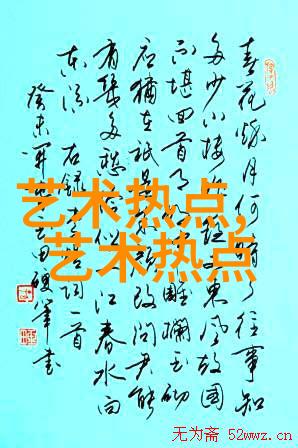 春花秋月何时了往事知
多少小楼昨夜又東风故国
不堪回首月明中雕欄玉砌
应犹在祇是朱颜改问君能
有几多愁恰似一江春水向
东流 右録李煜词一首
癸未 田 军书
艺术热点,
艺术热点
无为斋 52wwz.cn